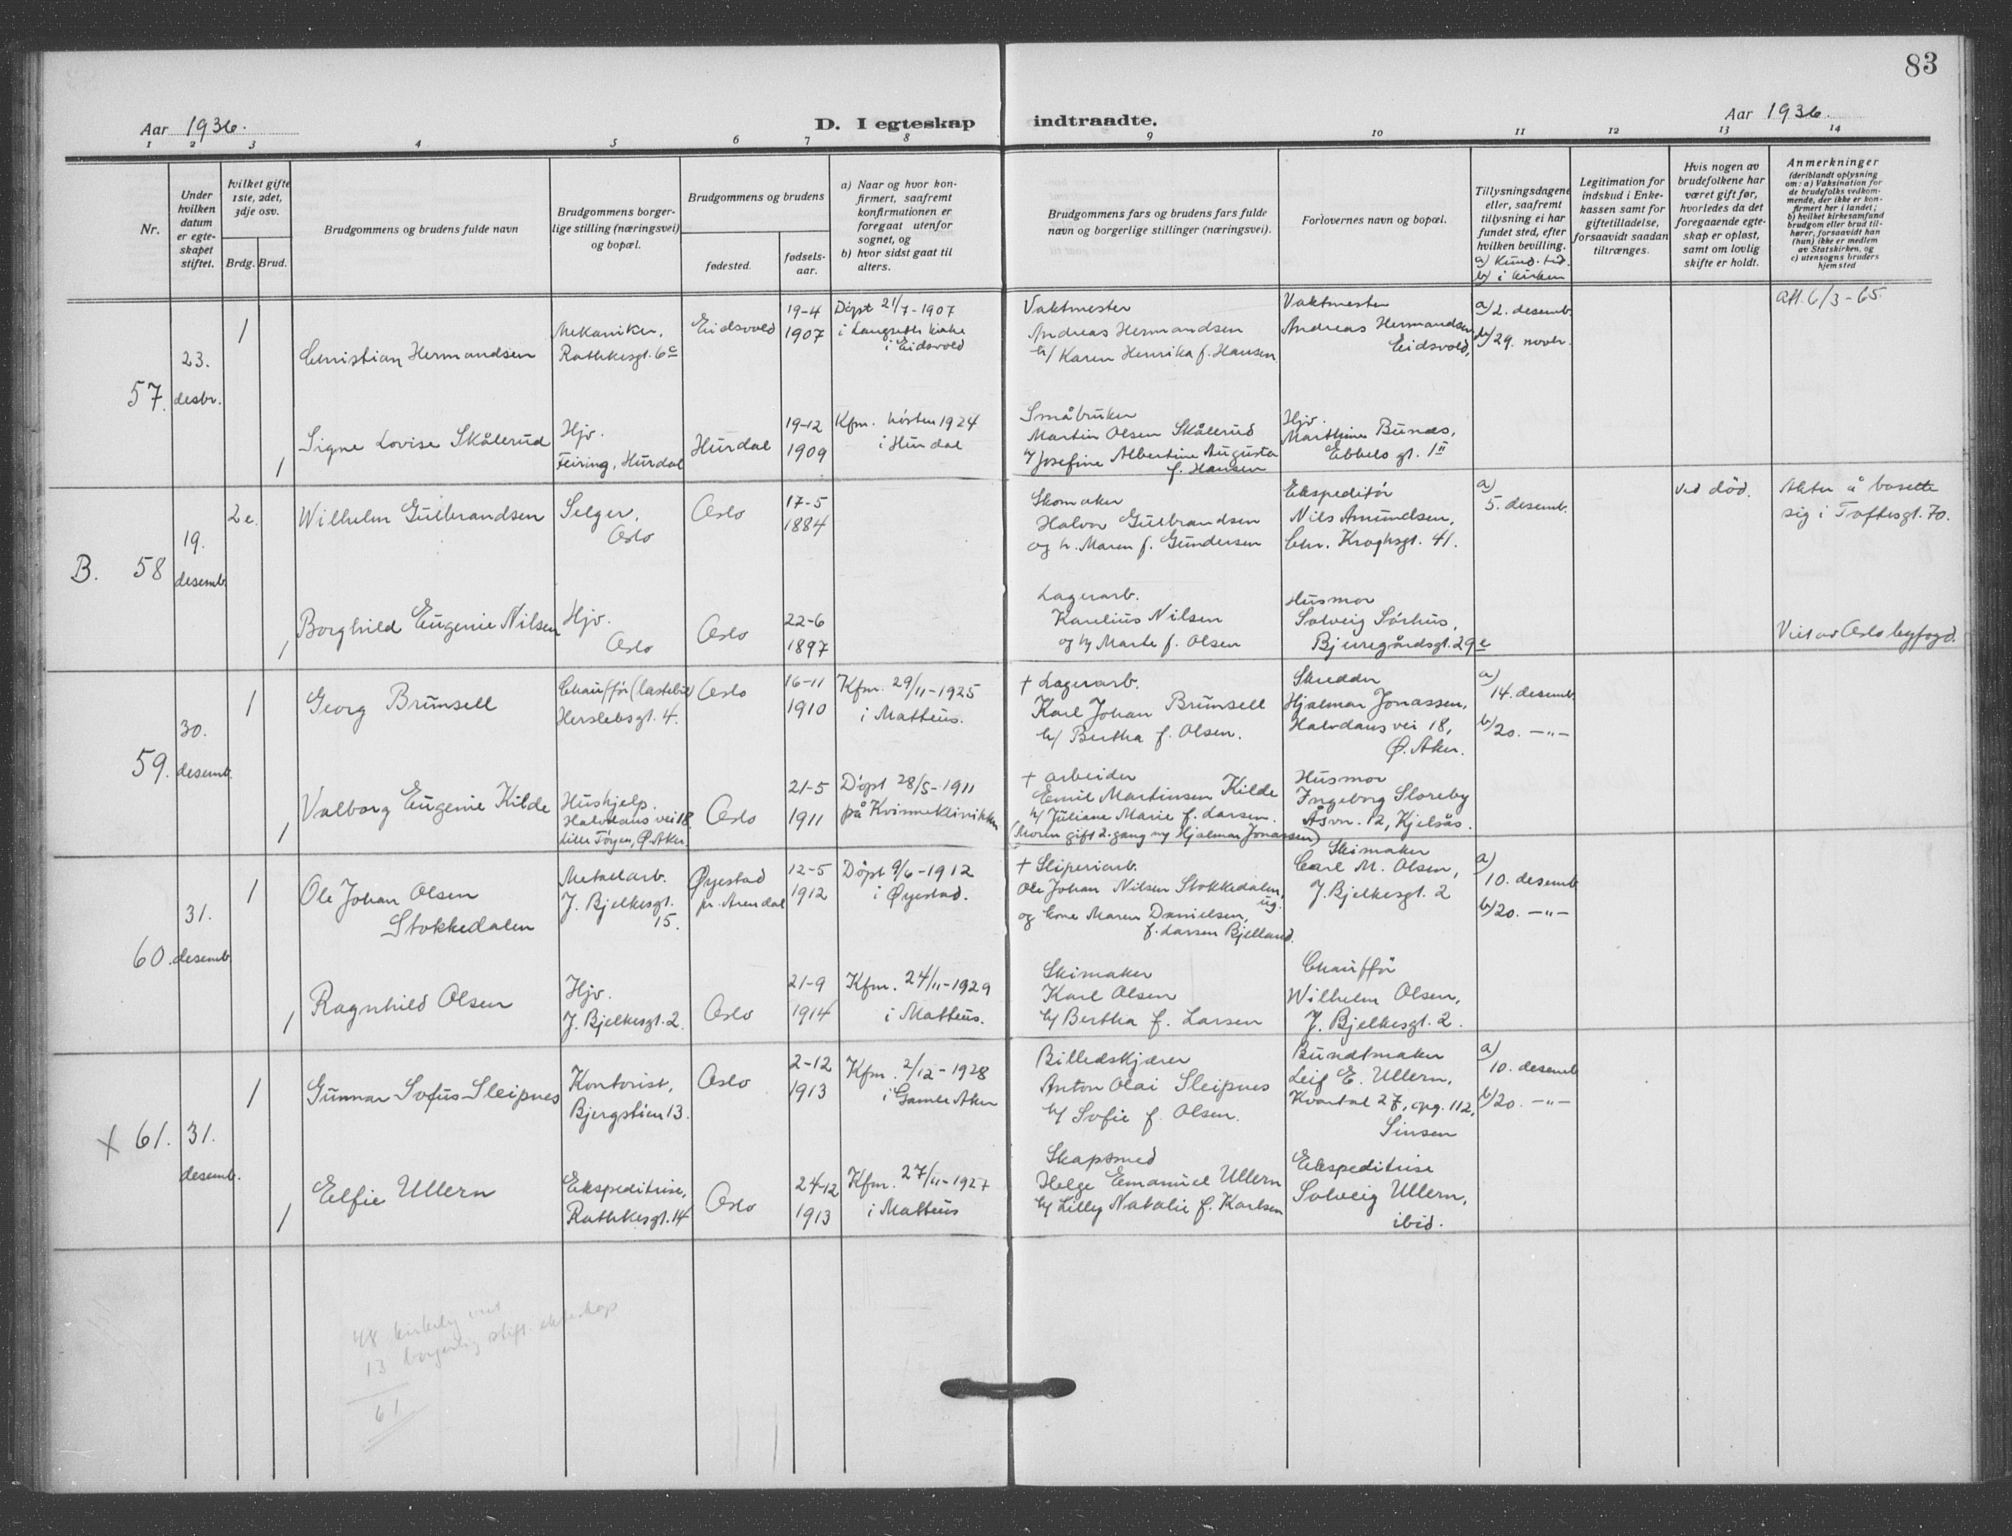 83
Aar 1936.
D. I egteskap indtraadte.
Aar 1936.
1 2 3 4 5 6 7 8 9 10 11 12 13 14
Nr.
Under hvilken datum er egteskapet stiftet.
hvilket gifte 1ste, 2det, 3dje osv.
Brdg. Brud.
Brudgommens og brudens fulde navn
Brudgommens borgerlige stilling (næringsvei) og bopæl.
Brudgommens og brudens
fødested.
fødselsaar.
a) Naar og hvor konfirmert, saafremt konfirmationen er foregaat utenfor sognet, og
b) hvor sidst gaat til alters.
Brudgommens fars og brudens fars fulde navn og borgerlige stillinger (næringsvei).
Forlovernes navn og bopæl.
Tillysningsdagene eller, saafremt tillysning ei har fundet sted, efter hvilken bevilling.
a) Kund. tid.
b) i kirken
Legitimation for indskud i Enkekassen samt for giftetilladelse, forsaavidt saadan tiltrænges.
Hvis nogen av brudefolkene har været gift før, hvorledes da det foregaaende egteskap er opløst, samt om lovlig skifte er holdt.
Anmerkninger
(deriblandt oplysning om: a) Vaksination for de brudefolks vedkommende, der ikke er konfirmert her i landet; b) hvilket kirkesamfund brudgom eller brud tilhører, forsaavidt han (hun) ikke er medlem av Statskirken, og c) utensogns bruders hjemsted
57.
23. desbr.
1
Christian Hermandsen
Mekaniker,
Rathkesgt. 6c
Eidsvold
19-4
1907
Døpt 21/7-1907
i Langseth kirke
i Eidsvold
Vaktmester
Andreas Hermandsen
h/ Karen Henrika f. Hansen
Vaktmester
Andreas Hermandsen
Eidsvold,
a/ 2. desemb.
b/ 29. novbr.
Att. 6/3-65.
1
Signe Lovise Skålerud
Hjv.
Feiring, Hurdal
Hurdal
19-12
1909
Kfm. høsten 1924
i Hurdal
Småbruker
Martin Olsen Skålerud
h/ Josefine Albertine Augusta
f. Hansen
Hjv.
Marthine Bunæs,
Ebbels gt. 1 II
B. 58
19. desemb.
2e.
Wilhelm Gulbrandsen
Selger,
Oslo
Oslo
17-5
1884
Skomaker
Halvor Gulbrandsen
og h. Maren f. Gundersen
Ekspeditør
Nils Amundsen,
Chr. Kroghsgt. 41.
a)
5. desemb.
Ved død.
Akter å bosette
sig i Toftesgt. 70.
1
Borghild Eugenie Nilsen
Hjv.
Oslo
Oslo
22-6
1897
Lagerarb.
Karelius Nilsen
og h/ Marte f. Olsen
Husmor
Solveig Sørhus,
Bjeregårdsgt. 29e
Viet av Oslo byfogd.
59.
30. desemb.
1
Georg Brunsell
Chauffør (lastebil)
Herslebsgt. 4.
Oslo
16-11
1910
Kfm. 29/11-1925
i Matteus.
+ Lagerarb.
Karl Johan Brunsell
h/ Bertha f. Olsen.
Skredder
Hjalmar Jonassen,
Halvdans vei 18,
Ø. Aker.
a)
14. desemb.
b/ 20. -"-
1
Valborg Eugenie Kilde
Hushjelp.
Halvdans vei 18
Lille Tøyen, Ø. Aker.
Oslo
21-5
1911
Døpt 28/5-1911
på Kvinneklinikken
+ arbeider
Emil Martinsen Kilde
h/ Juliane Marie f. Larsen.
(Moren gift 2. gang m/ Hjalmar Jonassen)
Husmor
Ingeborg Sloreby
Åsvn. 12, Kjelsås.
60.
31. desemb.
1
Ole Johan Olsen
Stokkedalen
Metallarb.
J. Bjelkesgt.
15.
Øyestad
pr. Arendal
12-5
1912
Døpt 9/6-1912
i Øyestad.
+ Sliperiarb.
Ole Johan Nilsen Stokkedalen,
ug.
og Erne Maren Danielsen,
f. Larsen Bjelland.
Skimaker
Carl M. Olsen,
J. Bjelkesgt. 2
a)
10. desemb
b/ 20. -"-
1
Ragnhild Olsen
Hjv.
J. Bjelkesgt. 2.
Oslo
21-9
1914
Kfm. 24/11-1929
i Matteus.
Skimaker
Karl Olsen
h/ Bertha f. Larsen
Chauffør
Wilhelm Olsen,
J. Bjelkesgt. 2.
x 61.
31. desemb.
1
Gunnar Sofus Sleipnes
Kontorist,
Bjergstien 13.
Oslo
2-12
1913
Kfm. 2/12-1928
i Gamle Aker
Billedskjærer
Anton Olai Sleipnes
h/ Sofie f. Olsen.
Bundtmaker
Leif E. Ullern,
Kvartal 27, opg. 112,
Sinsen
a)
10. desemb
b/ 20. -"-
1
Elfie Ullern
Ekspeditrise,
Rathkesgt. 14
Oslo
24-12
1913
Kfm. 27/11-1927
i Matteus
Skapsmed
Helge Emanuel Ullern
h/ Lilly Natalie f. Karlsen
Ekspeditrise
Solveig Ullern,
ibid.
48 kirkelig viet
13 borgerlig stift. ekteskap
61